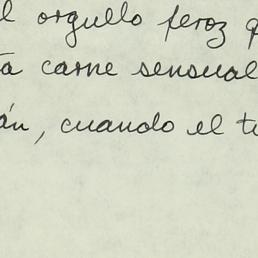 l orgullo feroz q
ta carne sensual
án, cuando el t